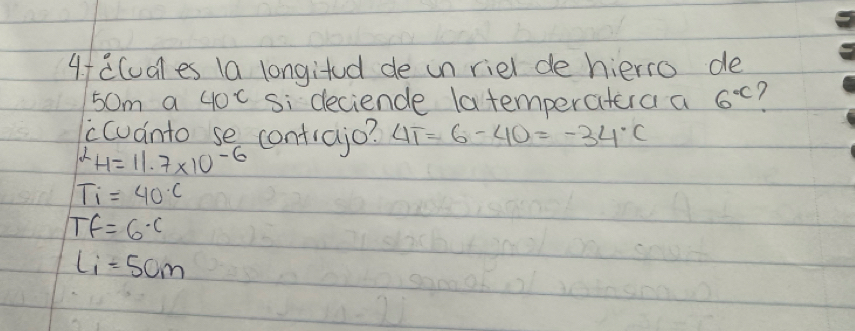 4.- ¿Cuál es la longitud de un riel de hierro de
50m a 40°C si deciende la temperatura a 6°C?
¿Cuánto se contrajo? ΔT= 6-40= -34°C
αH= 11.7x10^-6
Ti= 40°C
Tf= 6°C
Li=50m